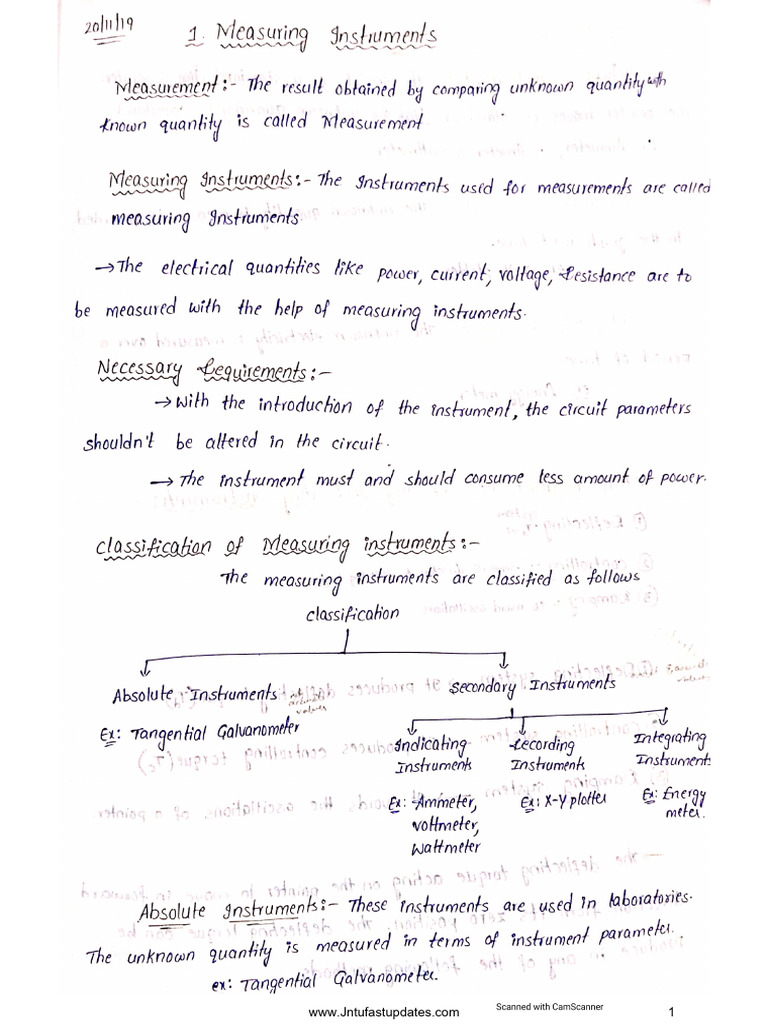 20/11/19
1. Measuring Instruments
Measurement:- The result obtained by comparing unknown quantity with
known quantity is called Measurement
Measuring Instruments:- The Instruments used for measurements are called
measuring Instruments
→ The electrical quantities like power, current, voltage, Resistance are to
be measured with the help of measuring instruments.
Necessary Requirements:-
→ With the introduction of the instrument, the circuit parameters
shouldn't be altered in the circuit.
→ The instrument must and should consume less amount of power.
Classification of Measuring instruments:-
The measuring instruments are classified as follows
classification
Absolute Instruments Secondary Instruments
Ex: Tangential Galvanometer
Indicating Recording Integrating
Instrument Instrument Instrument
Ex: Ammeter, Ex: X-Y plotter Ex: Energy
voltmeter, meter.
wattmeter
Absolute Instruments:- These instruments are used in laboratories.
The unknown quantity is measured in terms of instrument parameter.
ex: Tangential Galvanometer.
www.Jntufastupdates.com Scanned with CamScanner 1